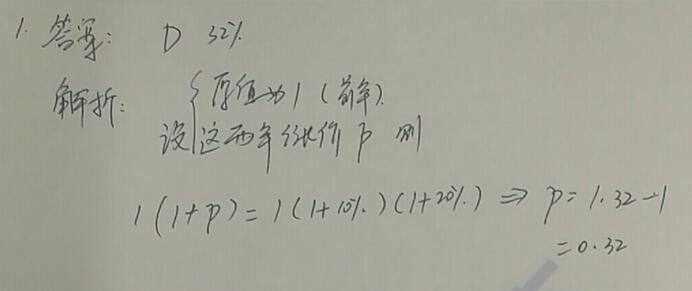 1. 答案: D 32%
解析: { 原值为1 (前年).
设 这两年 p 则
1(1+p)=1(1+10%.)(1+20%) ⇒ p=1.32-1
=0.32